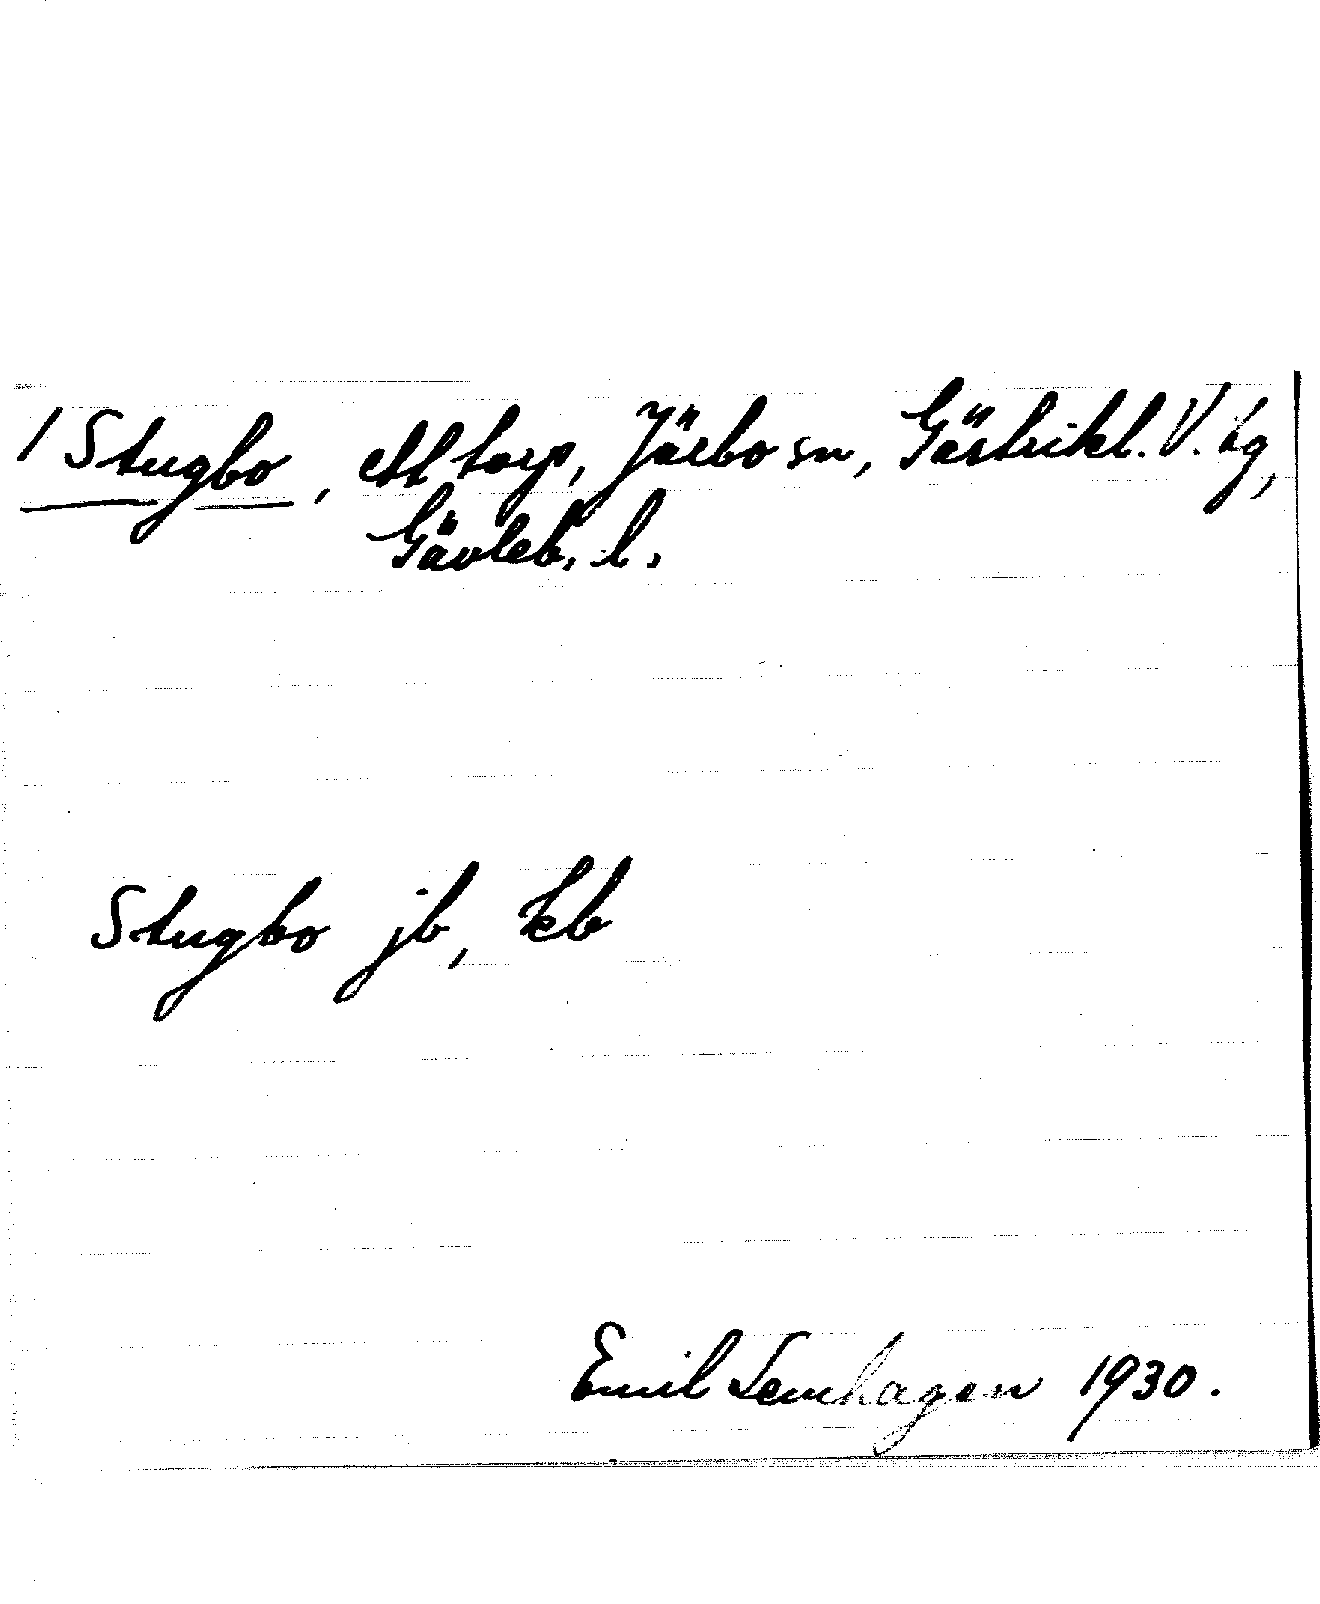 1 Stugbo, ett torp, Järbo sn, Gästrikl. V. tg,
Gävleb. l.
Stugbo jb, kb
Emil 1930.